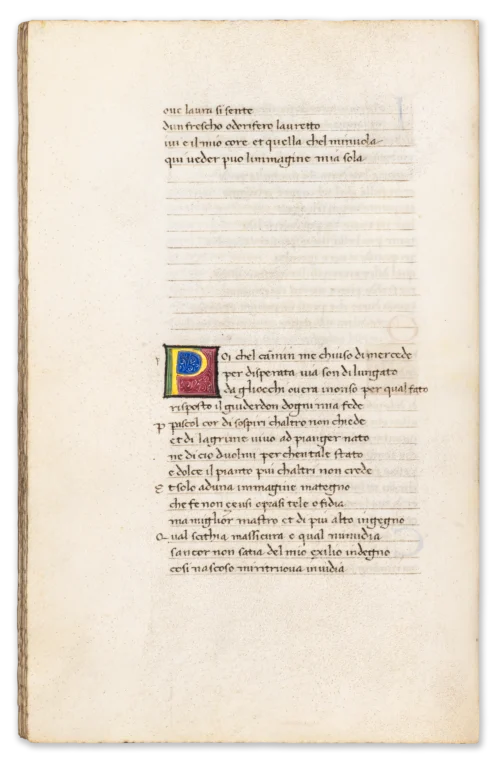 oue laura si sente
dun frescho odorifero lauretto
iui e il mio core et quella chel minuola
qui ueder puo limmagine mia sola
POi chel cãmin me chiuso di mercede
per disperata uia son dilungato
da gliocchi ouera inonso per qual fato
risposto il guiderdon dogni mia fede
P pascol cor di sospiri chaltro non chiede
et di lagrime uiuo ad pianger nato
ne di cio duolmi per chen tale stato
e dolce il pianto piu chaltri non crede
E t solo aduna immagine mategno
che fe non çeusi oprasi tele o fidia
ma miglior mastro et di piu alto ingegno
Q ual scithia massicura o qual numidia
sancor non satia del mio exilio indegno
cosi nascoso miritruoua inuidia